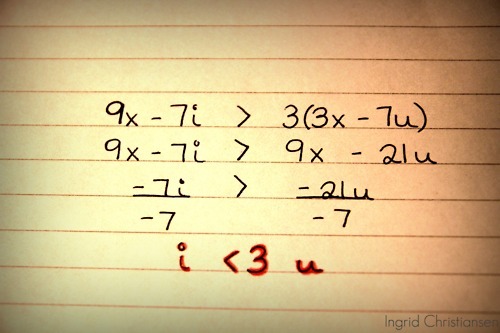 9x - 7i > 3(3x - 7u)
9x - 7i > 9x - 21u
-7i > -21u
-7 -7
i <3 u
Ingrid Christiansen